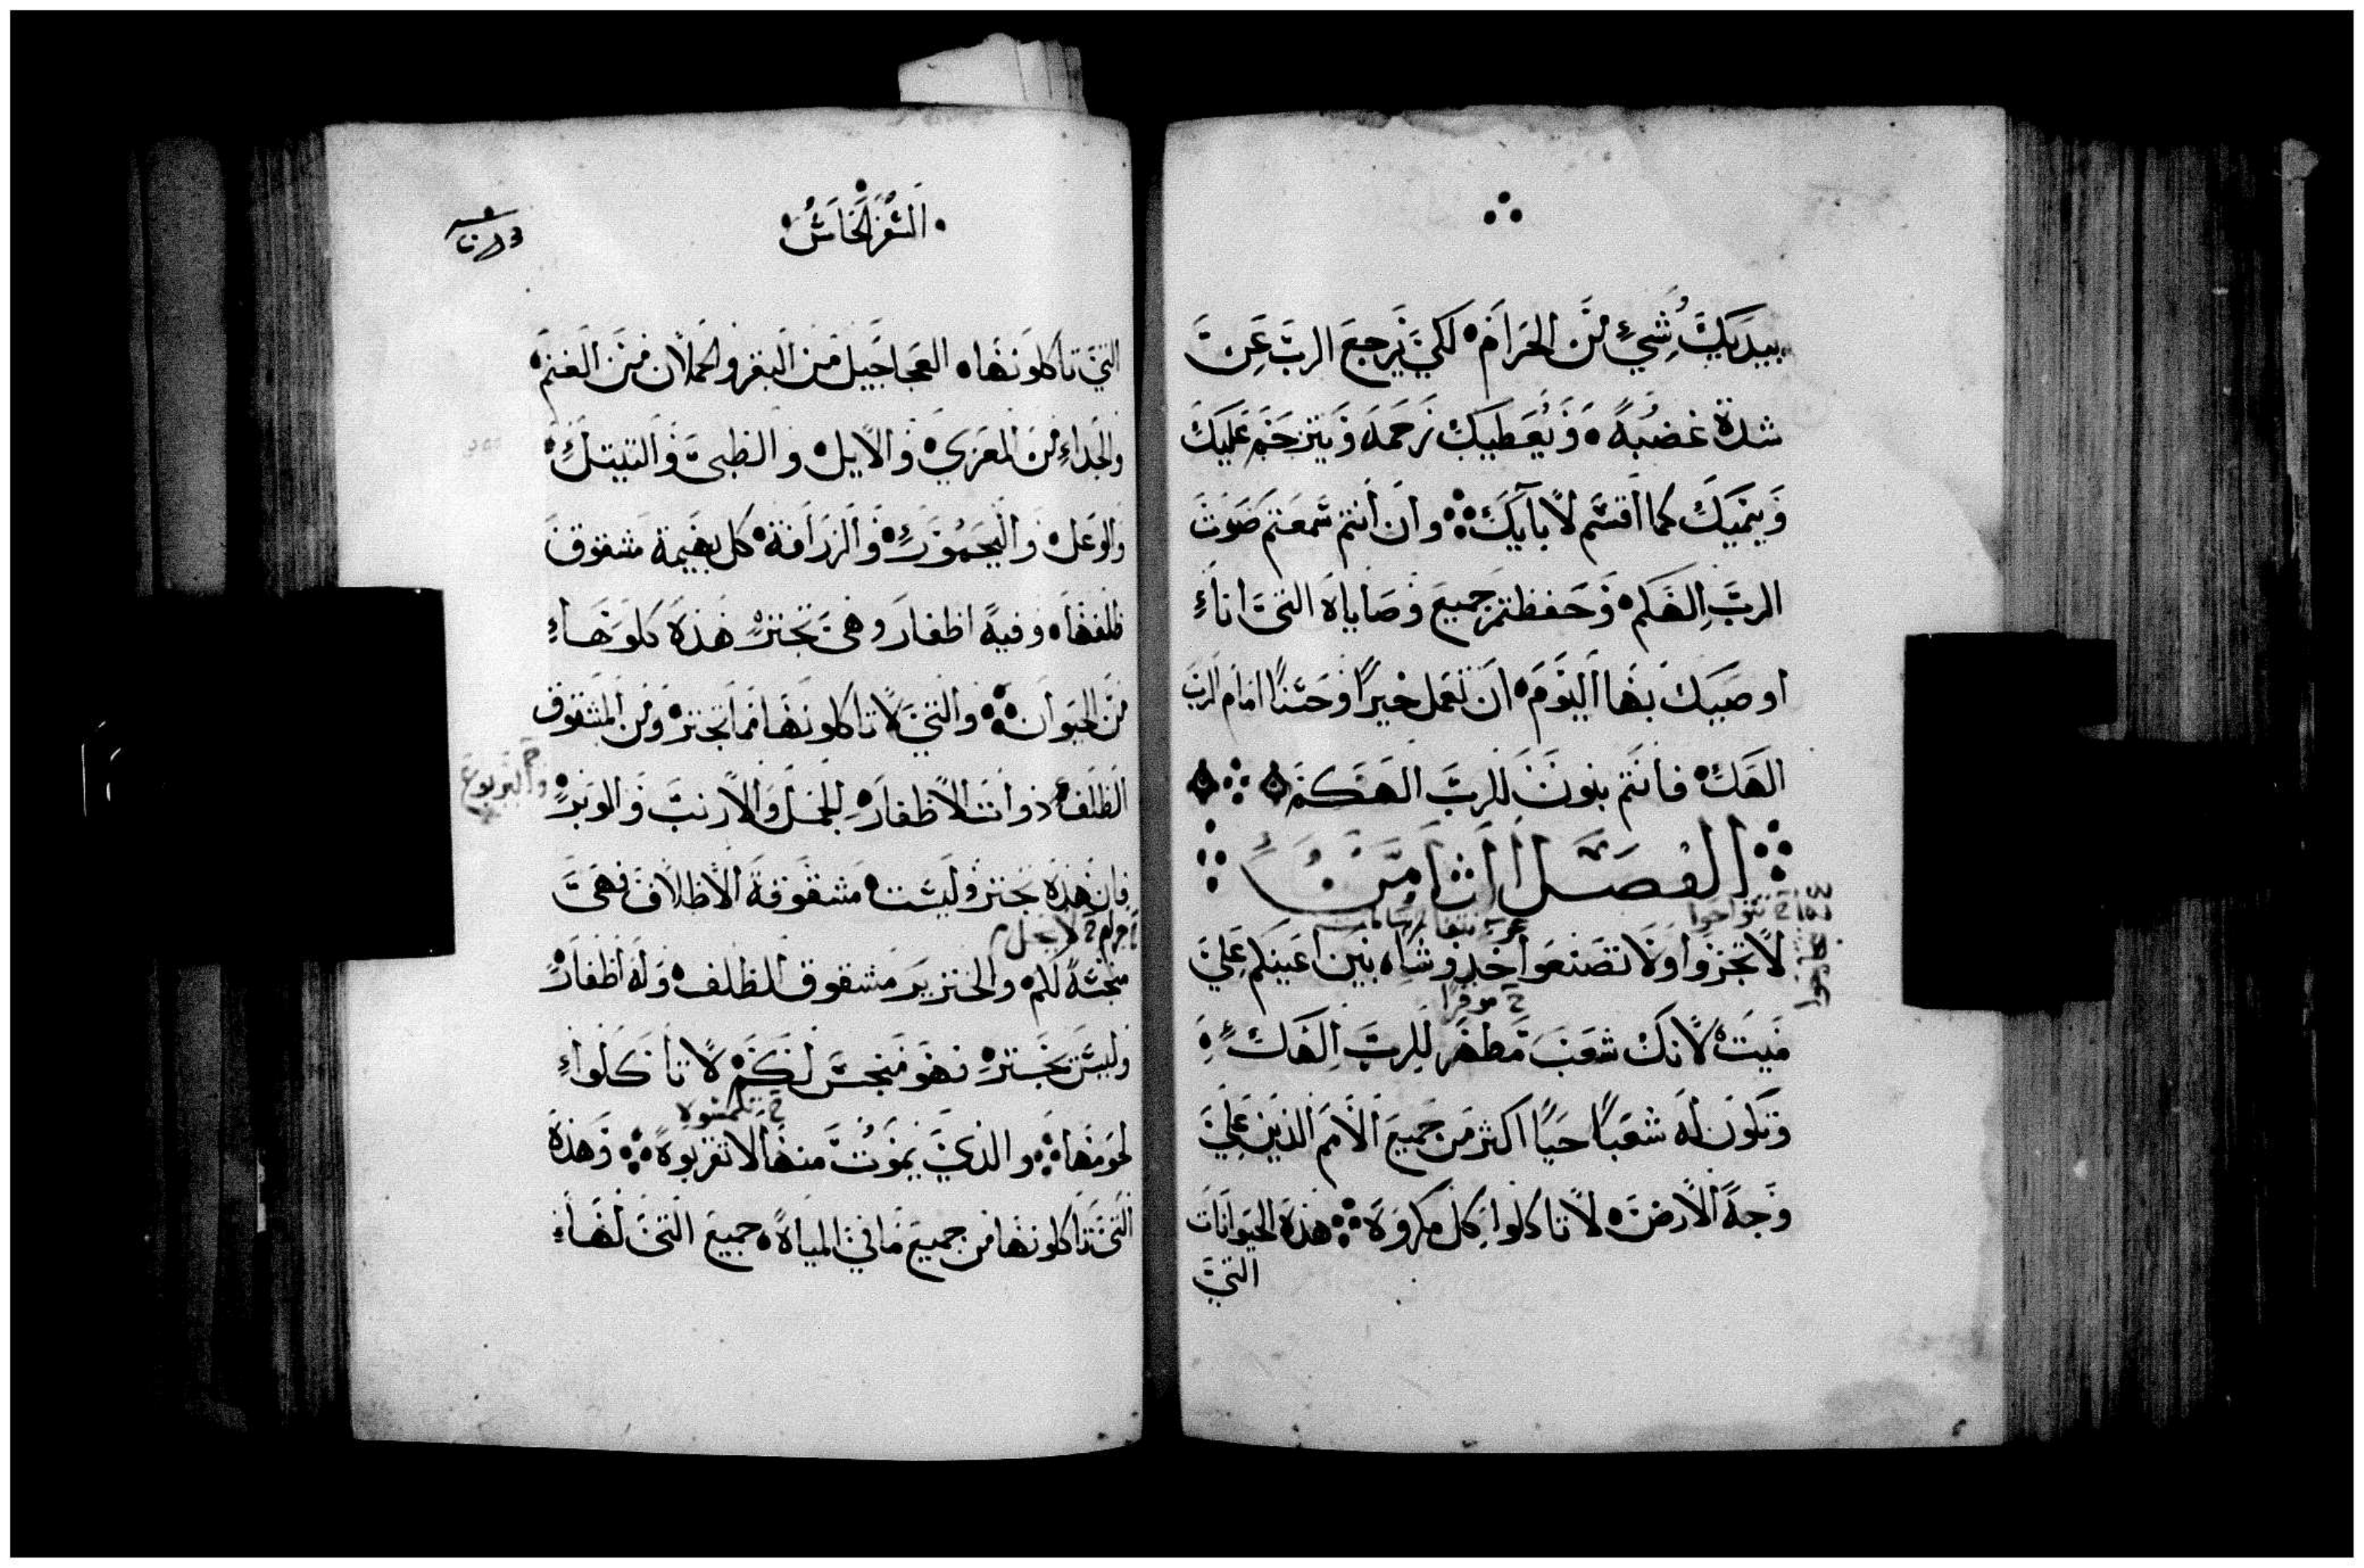 بيديك شي من الحرام لكي يرجع الرب عن
شدة غضبه ويعطيك رحمه ويترحم عليك
وينميك كما اقسم لابايك وان انتم سمعتم صوت
الرب الهكم وحفظتم جميع وصاياه التي انا
اوصيك بها اليوم ان تعمل خيرا وحسنا امام الرب
الهك فانتم بنون للرب الهكم
الفصل الثامن
لا تجزوا ولا تصنعوا خدوشا بين اعينكم علي
ميت لانك شعب مطهر للرب الهك
وتكون له شعبا حيا اكثر من جميع الامم الذين علي
وجه الارض لا تاكلوا كل مكروه هذه الحيوانات
التي
السفر الخامس
التي تاكلونها العجاجيل من البقر والحملان من الغنم
والجداء من المعزي والايل والظبي والتيتل
والوعل واليحمور والزرافة كل بهيمة مشقوق
ظلفها وفيه اظفار وهي تجتر هذه كلوها
من الحيوان والتي لا تاكلونها مما تجتر ومن المشقوق
الظلف ذوات الاظفار الجمل والارنب والوبر
واليربوع
فان هذه تجتر وليست مشقوقة الاظلاف فهي
منجسة لكم والخنزير مشقوق الظلف وله اظفار
وليس يجتر فهو منجس لكم لا تاكلوا
لحومها والذي يموت منها لا تقربوه وهذه
التي تاكلونها من جميع ما في المياه جميع التي لها